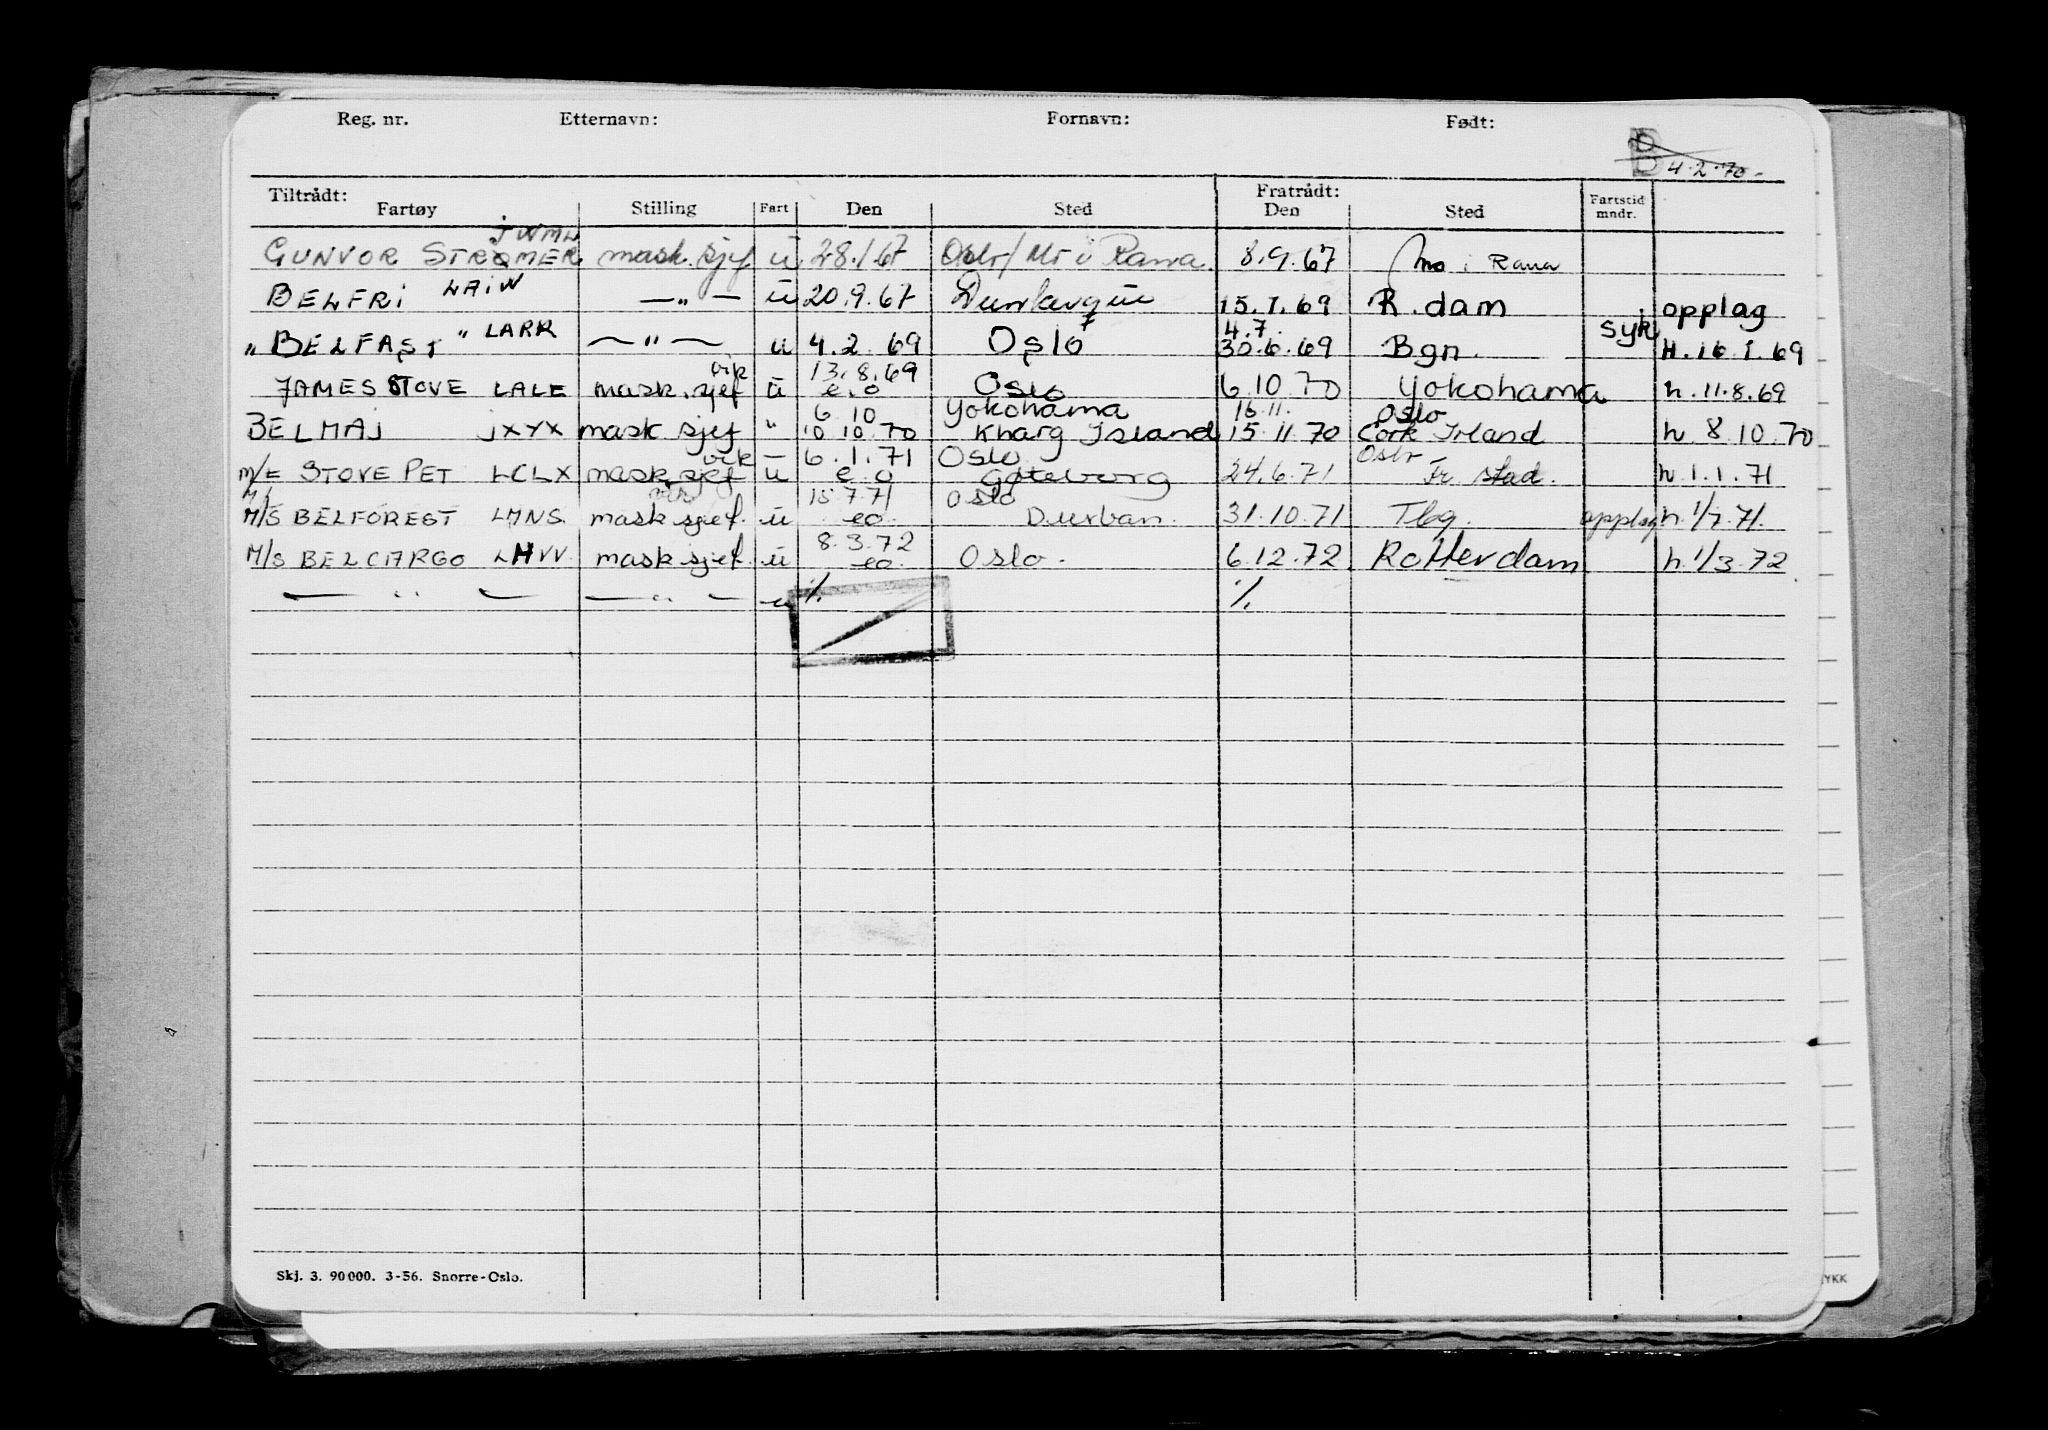 Reg. nr. Etternavn: Fornavn: Født:
4.2.70.
Tiltrådt: Fratrådt:
Fartøy Stilling Fart Den Sted Den Sted Fartstid mndr.
JWML
GUNVOR STRØMER mask. sjef u 28.1.67 Oslo/Mo i Rana. 8.9.67 Mo i Rana
BELFRI LAIW —"— u 20.9.67 Dunkerque 15.1.69 R.dam opplag
4.7.
"BELFAST" LARR —"— u 4.2.69 Oslo 30.6.69 Bgn. syk H.16.1.69
vik 13.8.69
JAMES STOVE LALE mask.sjef u e.o Oslo 6.10.70 Yokohama h.11.8.69
6.10 Yokohama 16.11. Oslo
BELMAJ JXYX mask sjef " 10.10.70 Kharg Island 15.11.70 Cork Irland h 8.10.70
vik — 6.1.71 Oslo Oslo
M/E STOVE PET LCLX mask sjef u e.o Gøteborg 24.6.71 Fr.stad. h.1.1.71
vik 15.7.71 Oslo
M/S BELFOREST LMNS. mask sjef. u eo. Durban. 31.10.71 Tbg. opplag h.1/7.71.
8.3.72
M/S BELCARGO LHVV. mask sjef. u eo. Oslo. 6.12.72. Rotterdam h.1/3.72.
— " — — " — u % %
Skj. 3. 90000. 3-56. Snorre-Oslo.
YKK